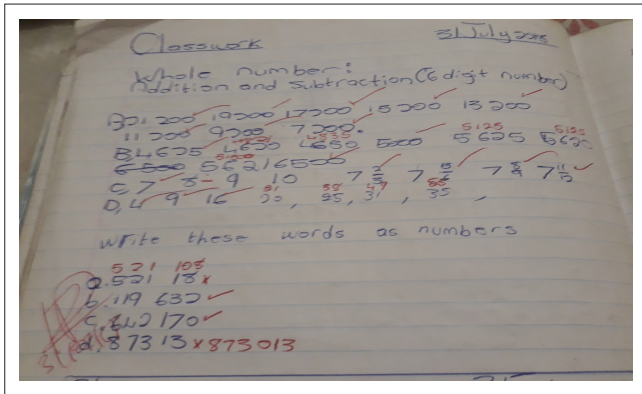 Classwork 31 July 2015
Whole number:
Addition and Subtraction (6 digit number)
A, 21 200 19200 17200 15 200 13 200
11 200 9200 7200.
5125 5125
B, 4625 4600 4650 5000 5625 5620
6 500 5621 6500
C, 7 8 9 10 7 7 7 7 11/12
D, 4 9 16 20, 25, 31, 35,
Write these words as numbers
521 108
a. 521 18 x
b. 119 632 ✓
c. 642 170 ✓
d. 873 13 x 873 013